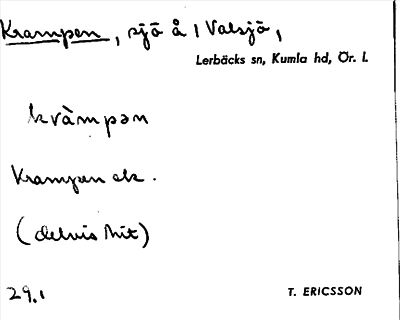 Krampen, sjö å 1 Valsjö,
Lerbäcks sn, Kumla hd, Ör. l.
kvàmpən
Krampen ek.
(delvis hit)
29.1
T. ERICSSON